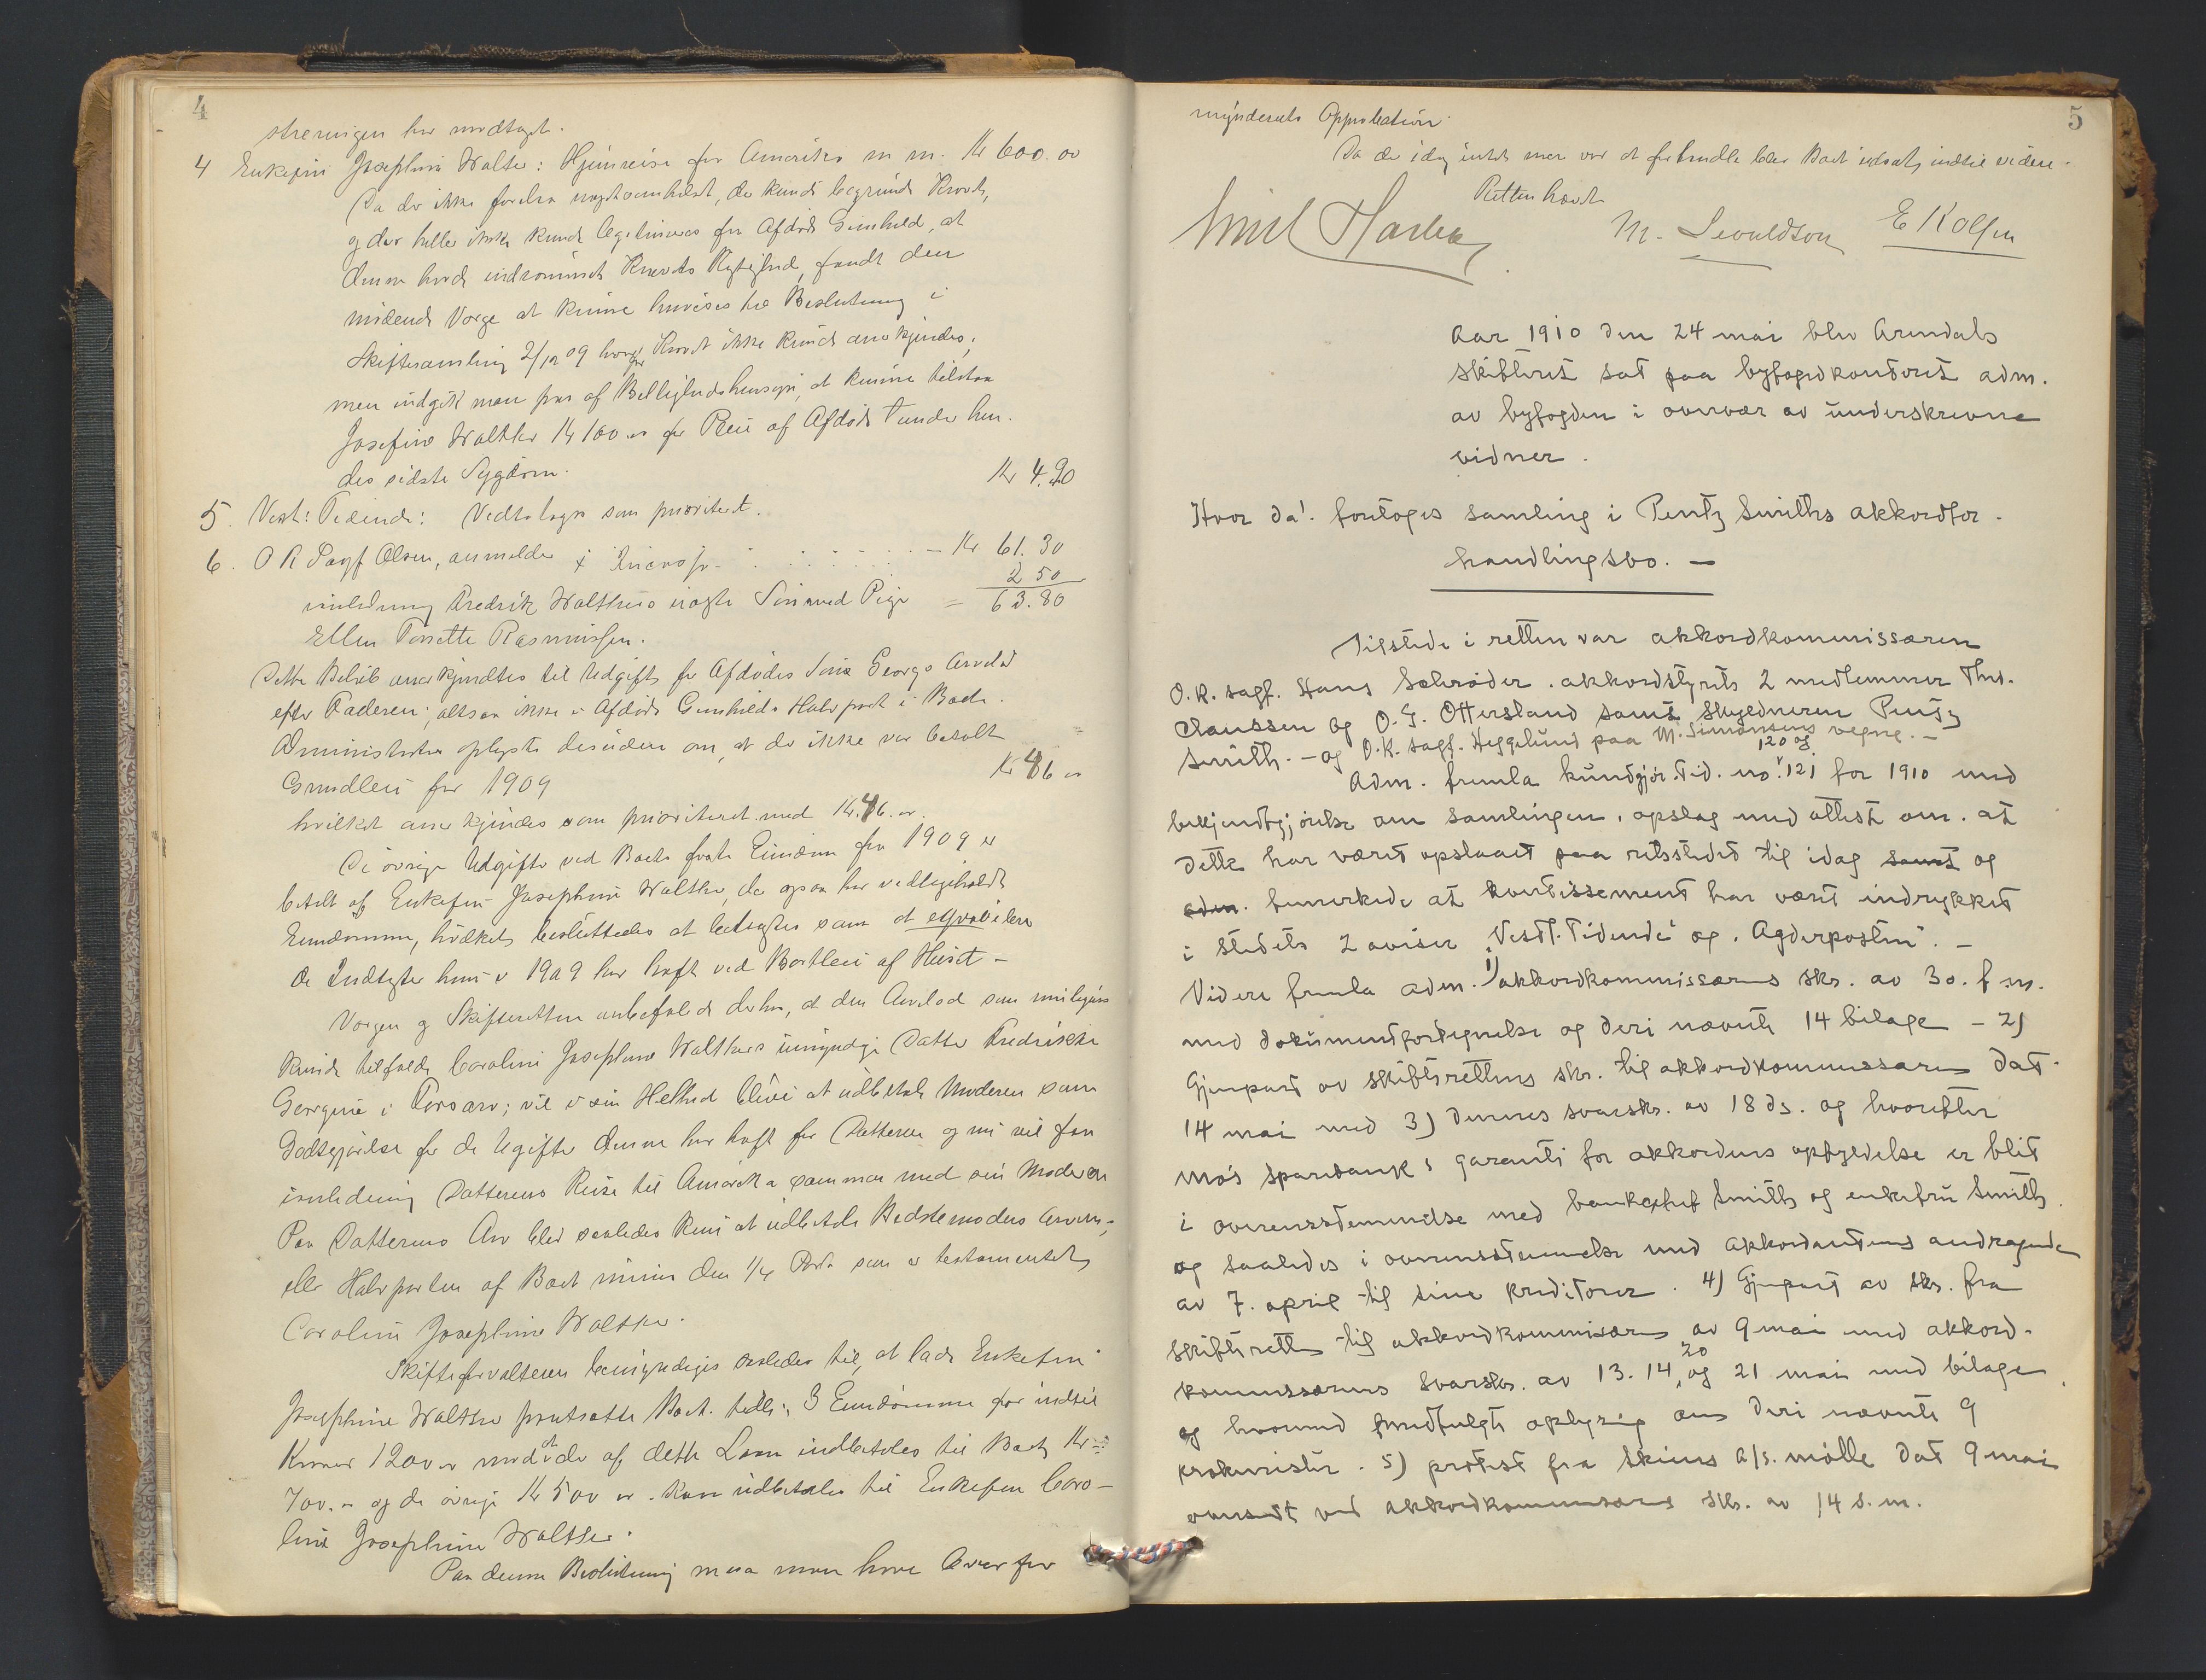 4
streningen har modtaget.
4 Enkefru Josephine Walter: Hjemreise fra Amerika m m. Kr 600.00
Da der ikke forelaa nogetsomhelst, der kunde begrunde Kravet,
og der heller ikke kunde legitimeres fra Afdøde Gunhild, at
denne havde indrømmet Kravets Rigtighed, fandt den
mødende Verge at kunne henvises til Beslutning i
Skiftesamling 2/12 09 hvor Kravet ikke kunde anerkjendes;
men indgik man paa af Billighedshensyn, at kunne tilstaa
Josefine Walther Kr 100.00 for Pleie af Afdøde under hen-
des sidste Sygdom.
5. Vest: Tidende: Vedtoges som prioritert. Kr 4.20
6. O R Sagf Olsen, anmelder i Skrivelse - Kr 61.30
2 50
anledning Fredrik Walthers uægte Søn med Pige = 63.80
Ellen Tonette Rasmussen.
Dette Beløb anerkjendtes til Udgift for Afdødes Søns Georgs Arvelod
efter Faderen; altsaa ikke i Afdøde Gunhilds Halvpart i Boet.
Administrator oplyste desuden om, at der ikke var betalt
Grundleie for 1909 Kr 46 00
hvilket anerkjendes som prioriteret med Kr. 46.00.
De øvrige Udgifter ved Boets faste Eiendom for 1909 er
betalt af Enkefru Josephine Walther, der ogsaa har vedligeholdt
Eiendommen, hvilket besluttedes at betragtes som et eqvivalent
de Indtægter hun i 1909 har havt ved Bortleie af Huset -
Vergen og Skifteretten anbefalede derhos, at den Arvelod som muligens
kunde tilfalde Caroline Josephine Walthers umyndige Datter Fredrikke
Georgine i Farsarv; vil i sin Helhed blive at udbetale Moderen som
Godtgjørelse for de Udgifter denne har havt for Datteren og nu vil faa
i anledning Datterens Reise til Amerika sammen med sin Moder
Paa Datterens Arv blev saaledes kun at udbetale Bedstemoders Arven;
eller Halvparten af Boet minus den 1/4 Part som er testamenteret
Caroline Josephine Walther.
Skifteforvalteren bemyndiges saaledes til, at lade Enkefru
Josephine Walther prantsætte Boets tilh. Eiendomme for indtil
Kroner 1200.00 mod at der af dette Laan indbetales til Boet Kr
700.00 og de øvrige Kr 500 00 kan udbetales til Enkefru Caro-
line Josephine Walther.
Paa denne Beslutning maa man have Overfor
5
mynderiets Approbation.
Da der idag intet mer var at forhandle blev Boet udsat indtil videre.
Retten hævet
Emil Harlem M. Levoldson E Kolfsen
Aar 1910 den 24 mai blev Arendals
skifteret sat paa byfogedkontoret adm.
av byfogden i overvær av underskrevne
vidner.
Hvor da! foretoges samling i Pentz Smiths akkordfor-
handlingsbo. —
Tilstede i retten var akkordkommissæren
O.R. sagf. Hans Schrøder. akkordstyrets 2 medlemmer Ths.
Claussen og O. G. Ottersland samt skyldneren Pentz
Smith. - og O.R. sagf. Heggelund paa M. Simonsens vegne. -
120 og
Adm. fremla kundgjør. Tid. no. 121 for 1910 med
bekjendtgjørelse om samlingen, opslag med attest om. at
dette har været opslaaet paa retsstedet til idag samt og
adm. bemerkede at avertissement har været indrykket
i stedets 2 aviser "Vestl. Tidende" og "Agderposten". -
Videre fremla adm. 1) akkordkommissærens skr. av 30. f m.
med dokumentfortegnelse og deri nævnte 14 bilage - 2)
Gjenpart av skifterettens skr. til akkordkommissæren dat.
14 mai med 3) dennes svarskr. av 18 ds. og hvorefter
Mo's sparebank's garanti for akkordens opfyldelse er blit
i overensstemmelse med bankchef Smith og enkefru Smith
og saaledes i overensstemmelse med akkordantens andragende
av 7. april til sine kreditorer. 4) Gjenpart av skr. fra
skifteretten til akkordkommissæren av 9 mai med akkord-
20
kommissærens svarskr. av 13. 14, og 21 mai med bilage
og hvormed medfulgte oplysning om deri nævnte 9
prokurister. 5) protest fra Skiens A/S. mølle dat 9 mai
oversendt ved akkordkommissærens skr. av 14 s. m.